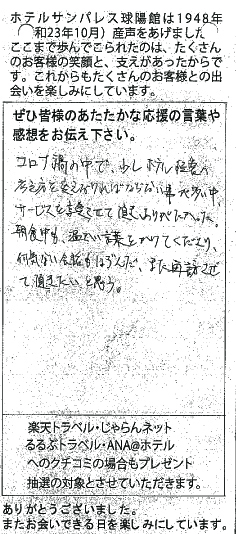 ホテルサンパレス球陽館は1948年
(昭和23年10月)産声をあげました
ここまで歩んでこられたのは、たくさん
のお客様の笑顔と、支えがあったからで
す。これからもたくさんのお客様との出
会いを楽しみにしています。
ぜひ皆様のあたたかな応援の言葉や
感想をお伝え下さい。
コロナ禍の中で、少しホテル経営へ
考え方を変えなければならない事が多い中、
サービスを享受させて頂きありがたかった。
朝食中も、温かい言葉をかけてくださり、
何気ない会話がはずんだ、また再訪させ
て頂きたいと思う。
楽天トラベル・じゃらんネット
るるぶトラベル・ANA@ホテル
へのクチコミの場合もプレゼント
抽選の対象とさせていただきます。
ありがとうございました。
またお会いできる日を楽しみにしています。